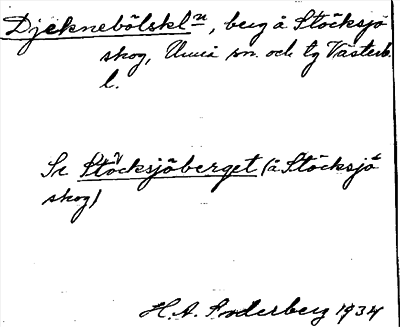 Djeknebölskl<u>n</u>, berg å Stöcksjö
skog, Umeå sn. och tg Västerb.
l.
Se Stöcksjöberget (å Stöcksjö
skog)
H. A. Söderberg 1934